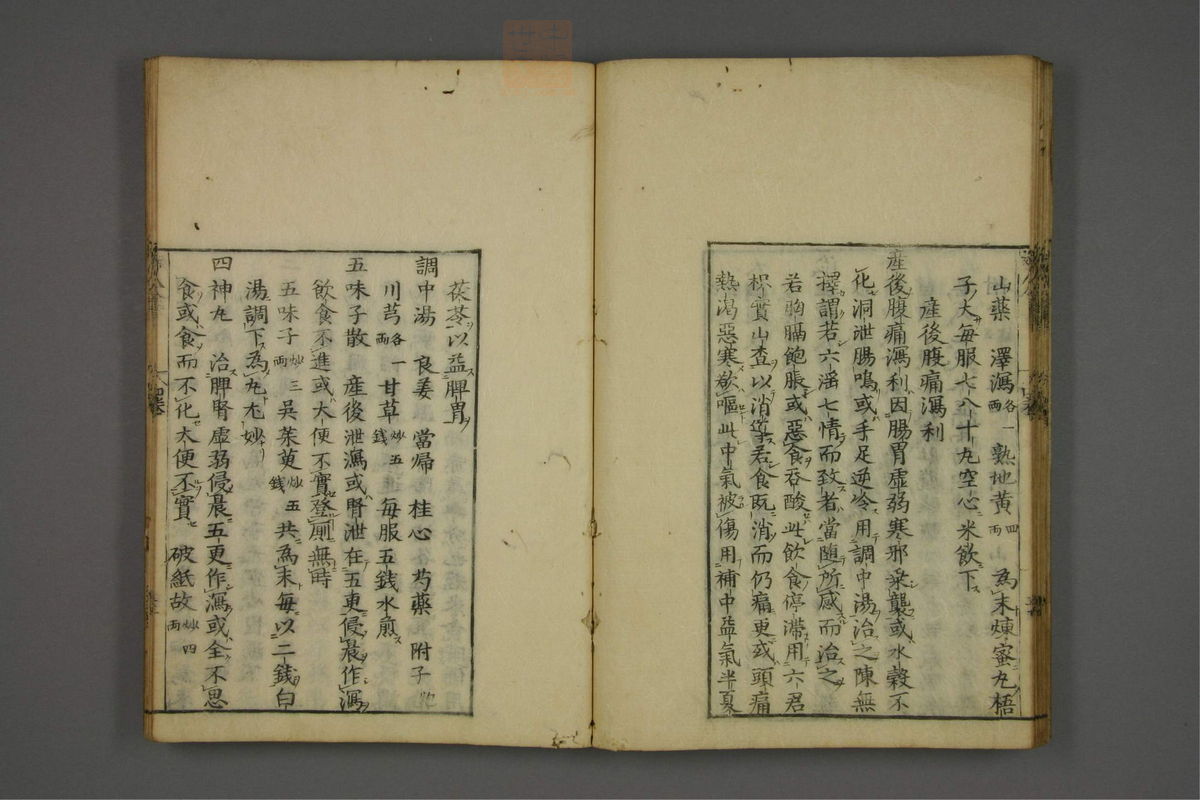 山藥 澤瀉各一兩 熟地黄四兩 山 為末煉蜜丸梧
子大每服七八十丸空心米飲下
産後腹痛瀉利
産後腹痛瀉利因腸胃虚弱寒邪乘襲或水穀不
化洞泄腸鳴或手足逆冷用調中湯治之陳無
擇謂若六滛七情而致者當随所感而治之
若胸膈飽脹或惡食吞酸此飲食停滯用六君
枳實山査以消導若食既消而仍痛更或頭痛
熱渇惡寒欲嘔此中氣被傷用補中益氣半夏
茯苓以益脾胃
調中湯 良姜 當歸 桂心 芍藥 附子炮
川芎各一兩 甘草炒五錢 每服五錢水煎
五味子散 産後泄瀉或腎泄在五更侵晨作瀉
飲食不進或大便不實登厠無時
五味子炒三兩 呉茱萸炒五錢 共為末每以二錢白
湯調下為丸尤妙
四神丸 治脾腎虚弱侵晨五更作瀉或全不思
食或食而不化大便不實 破紙故炒四兩